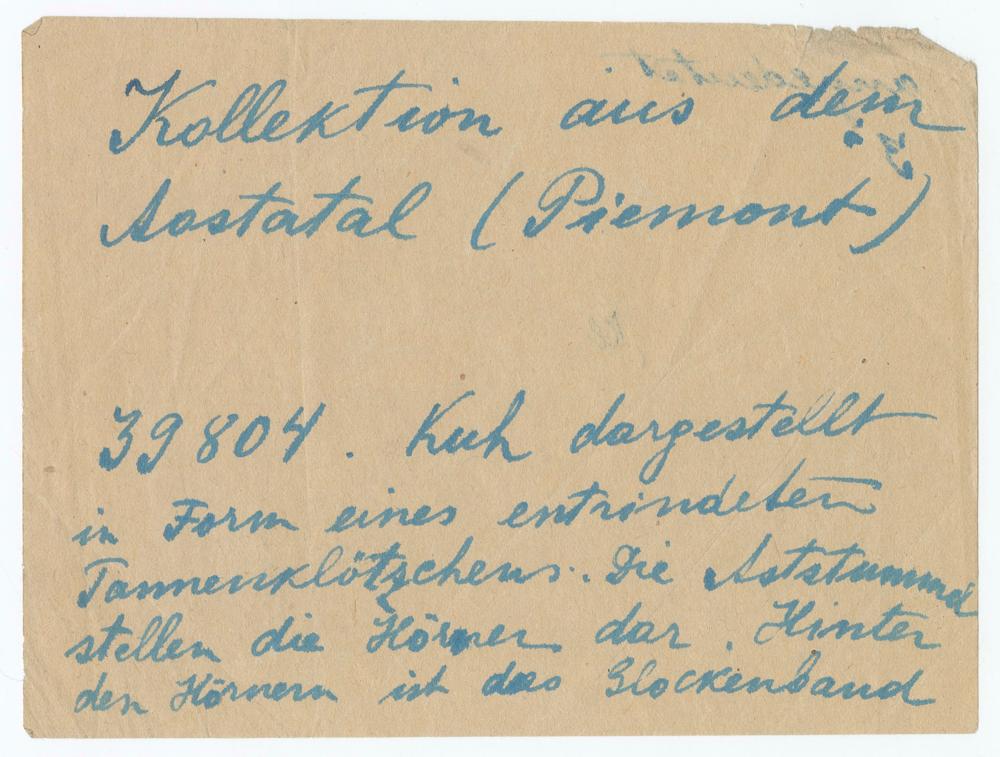 Kollektion aus dem
Aostatal (Piemont)
39804. Kuh dargestellt
in Form eines entrindeten
Tannenklötzchens. Die Aststummel
stellen die Hörner dar. Hinter
den Hörnern ist das Glockenband